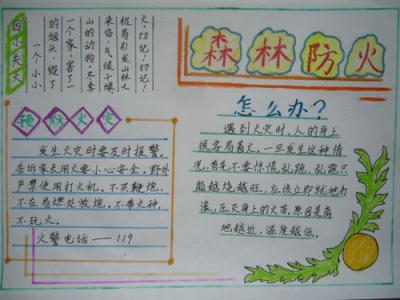 森林防火
因小失大
一个小小
的烟头,毁了
一个家,害了一
山的动物。冬季
来临,气候干燥
极易引发山林大
火,切记!切记!
预防火灾
发生火灾时要及时报警。
告诉家长用火要小心安全,野外
严禁使用打火机,不买鞭炮,
不在易燃处放炮,不带火种,
不玩火。
火警电话——119
怎么办?
遇到火灾时,人的身上
很容易着火,一旦发生这种情
况,首先不要惊慌乱跑,乱跑只
能越烧越旺,应该立即就地打
滚,压灭身上的火苗,原因是离
地越近,温度越低。